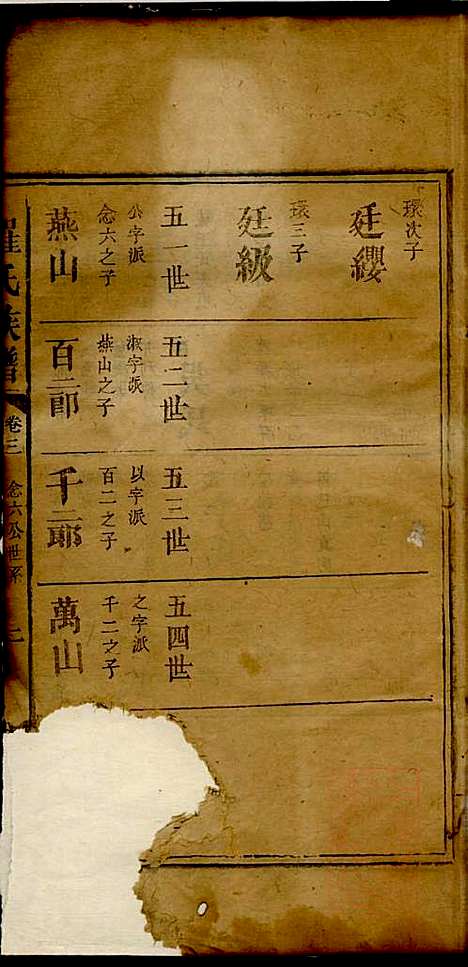 環次子
廷纓
環三子
廷級
五一世
公字派
念六之子
燕山
五二世
淑字派
燕山之子
百二郎
五三世
以字派
百二之子
千二郎
五四世
之字派
千二之子
萬山
氏族譜
卷三
念六公世系